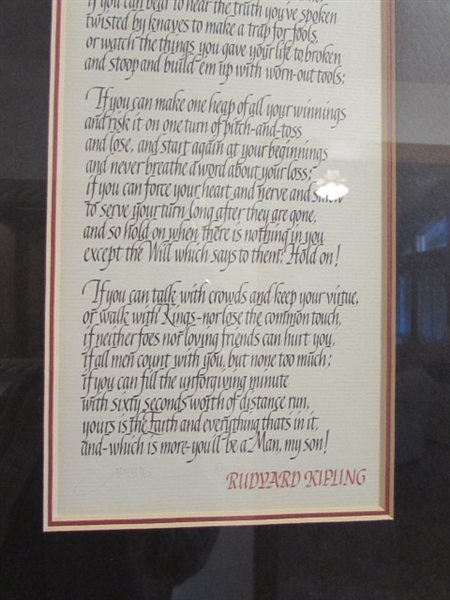 if you can bear to hear the truth you've spoken
twisted by knaves to make a trap for fools,
or watch the things you gave your life to broken
and stoop and build 'em up with worn-out tools;
If you can make one heap of all your winnings
and risk it on one turn of pitch-and-toss
and lose, and start again at your beginnings
and never breathe a word about your loss;
if you can force your heart and nerve and
to serve your turn long after they are gone,
and so hold on when there is nothing in you
except the Will which says to them: Hold on!
If you can talk with crowds and keep your virtue,
or walk with Kings-nor lose the common touch,
if neither foes nor loving friends can hurt you,
if all men count with you, but none too much;
if you can fill the unforgiving minute
with sixty seconds worth of distance run,
yours is the Earth and everything thats in it,
and-which is more-you'll be a Man, my son!
RUDYARD KIPLING